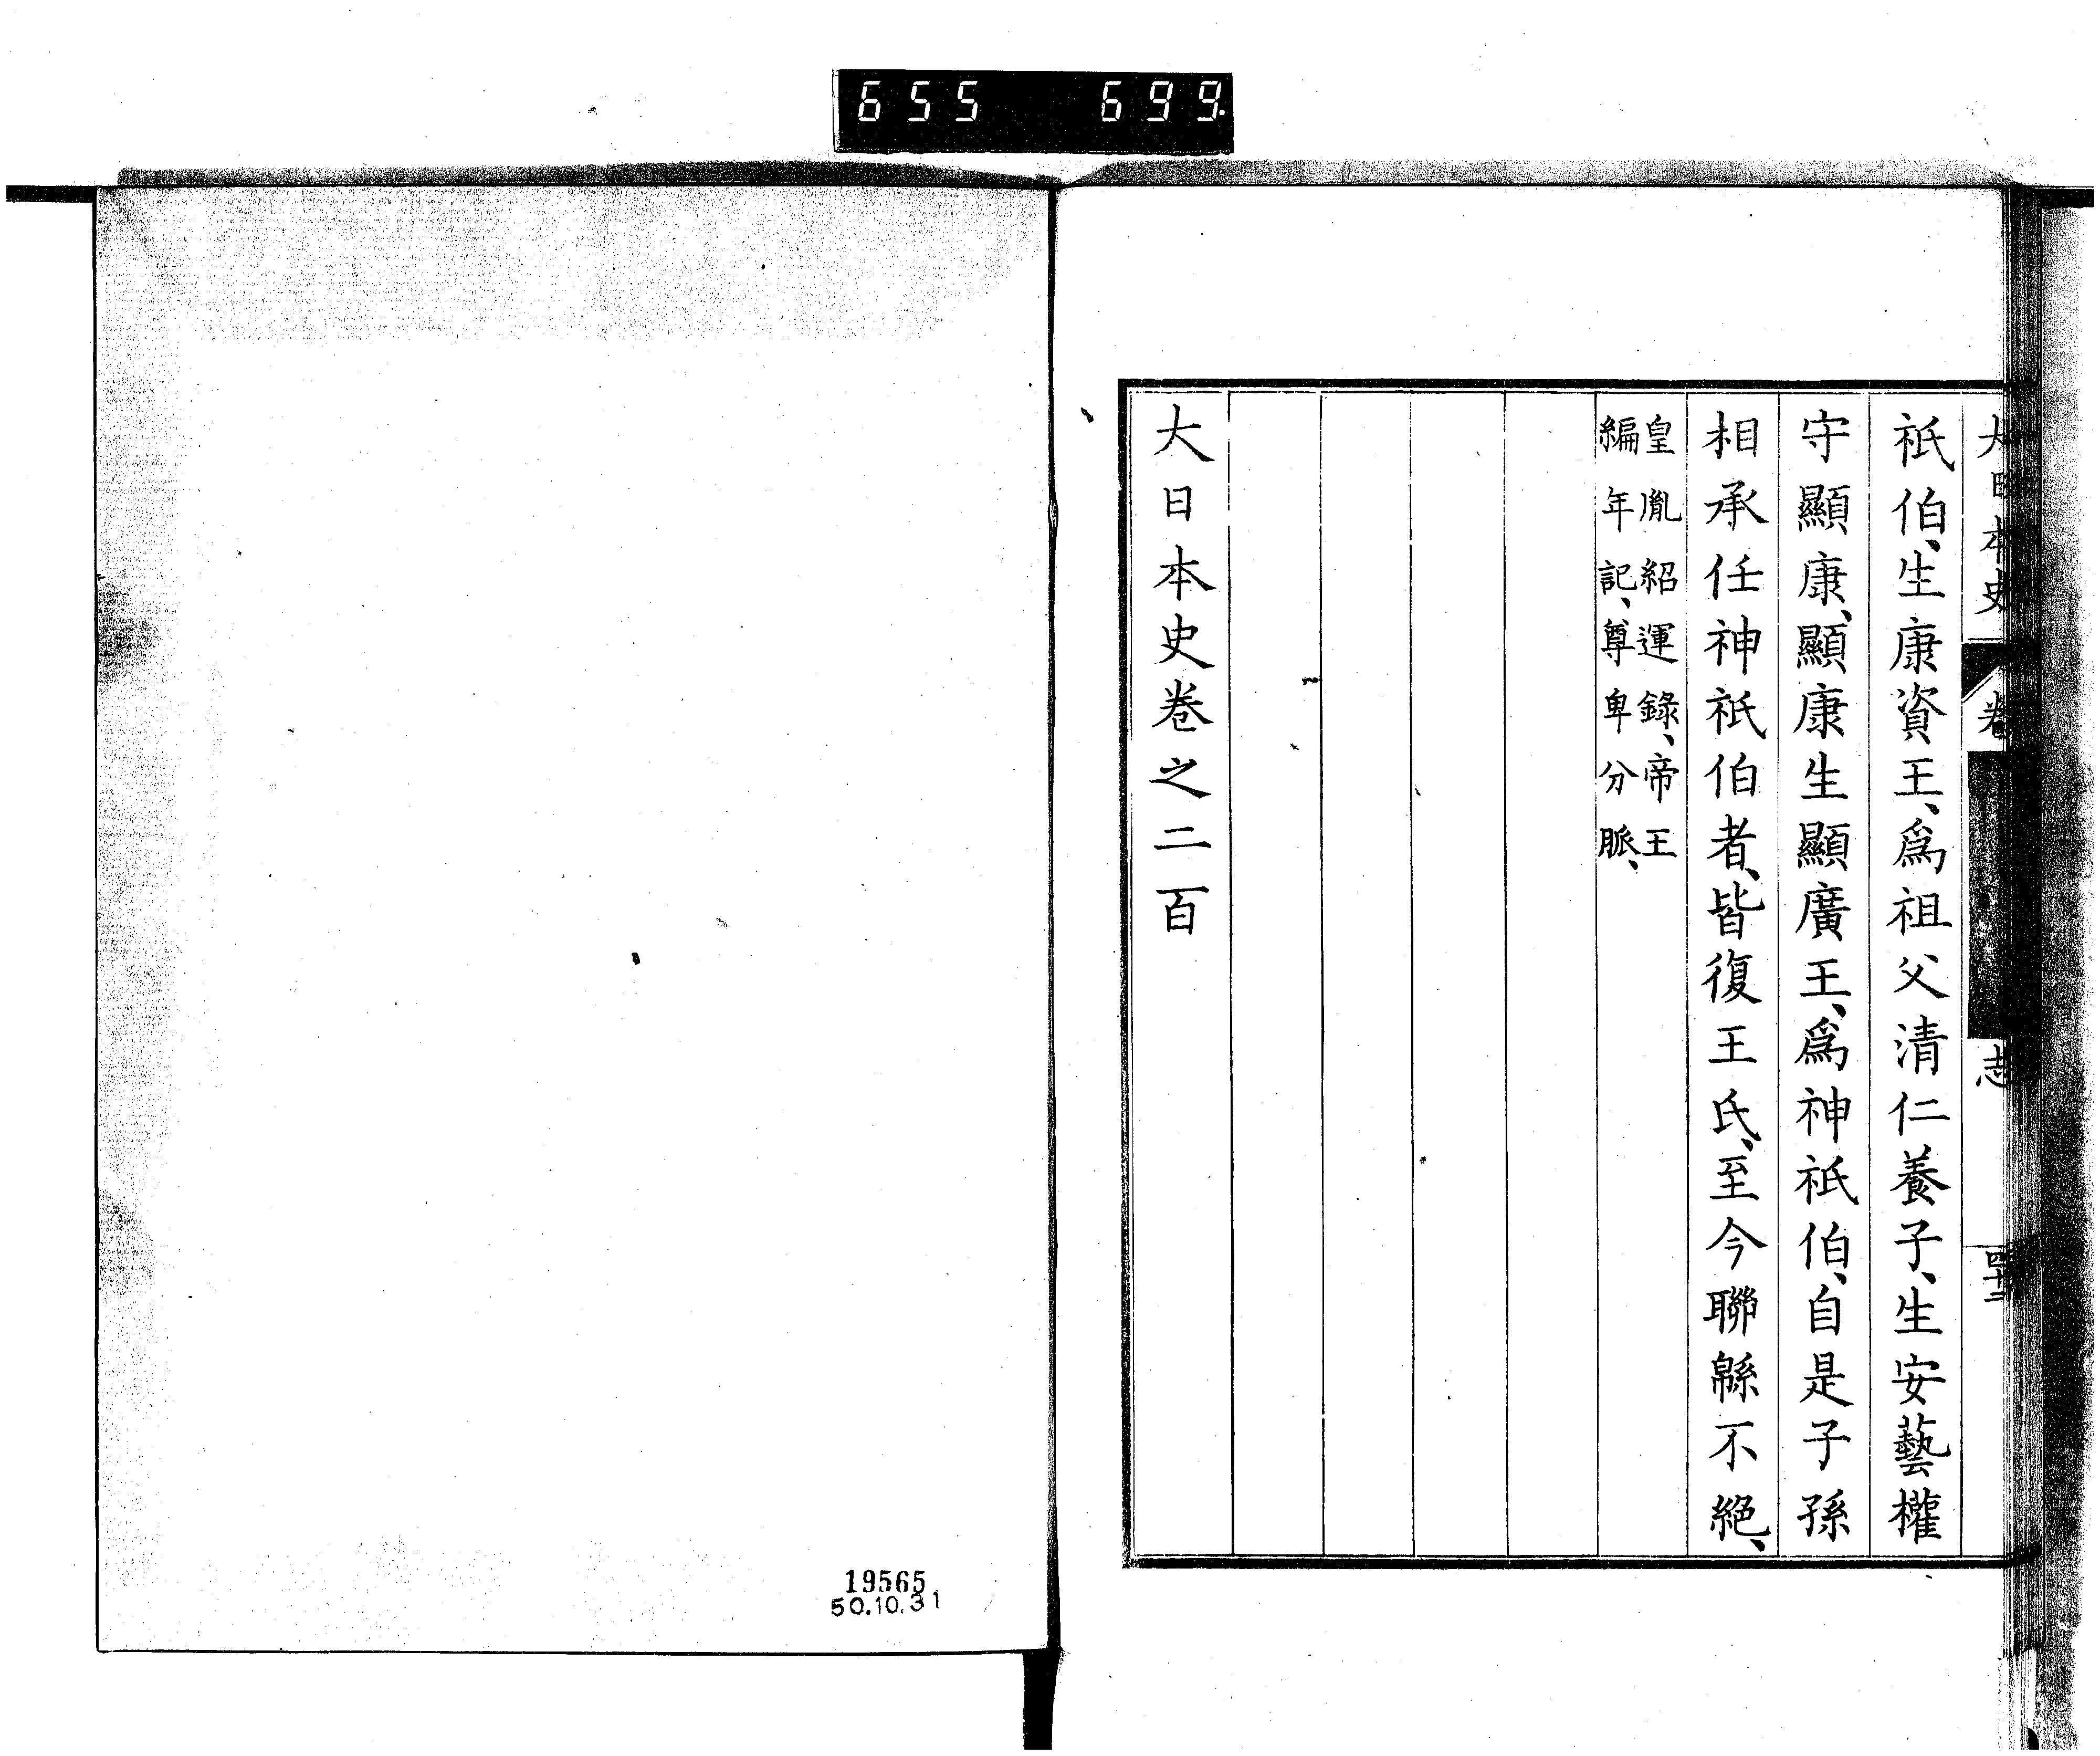 655 699.
大日本史 卷 志 四十二
祇伯、生康資王、爲祖父清仁養子、生安藝權
守顯康、顯康生顯廣王、爲神祇伯、自是子孫
相承任神祇伯者、皆復王氏、至今聯緜不絶、
皇胤紹運錄、帝王
編年記、尊卑分脈、
大日本史卷之二百
19565
50.10.31